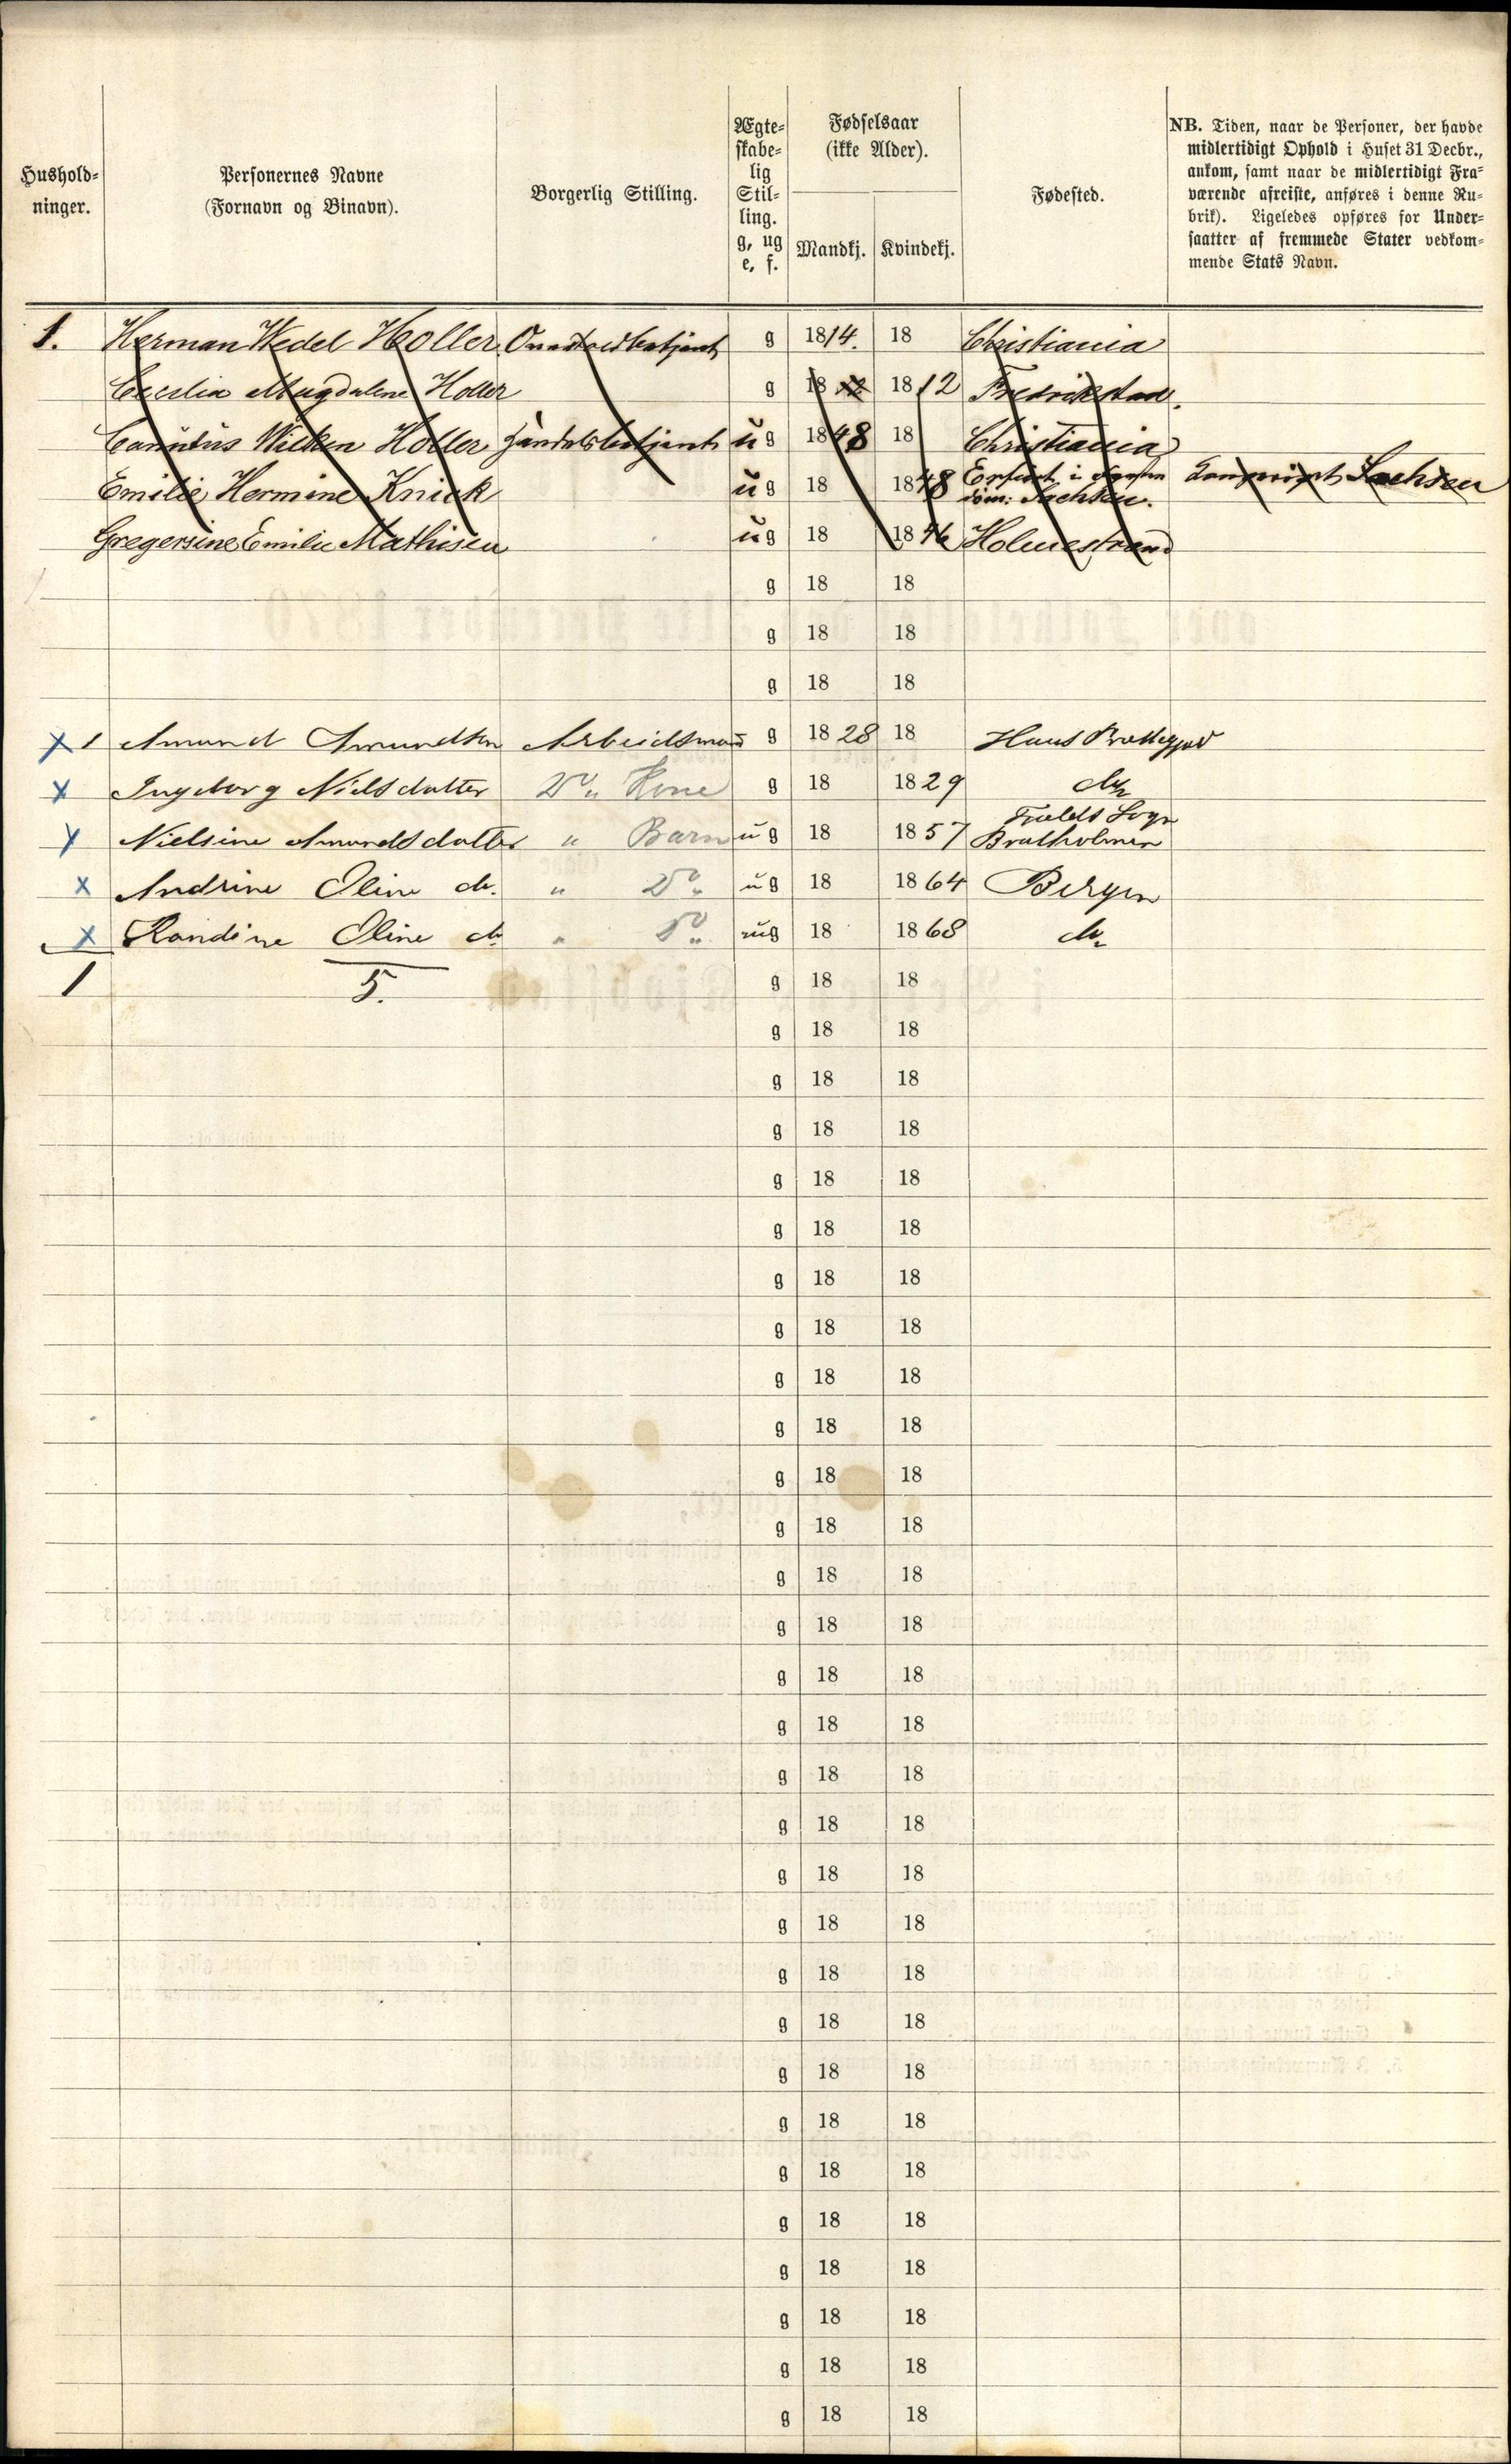 Hushold-
ninger.
Personernes Navne
(Fornavn og Binavn).
Borgerlig Stilling.
Ægte-
skabe-
lig
Stil-
ling.
g, ug
e, f.
Fødselsaar
(ikke Alder).
Mandkj. Kvindekj.
Fødested.
NB. Tiden, naar de Personer, der havde
midlertidigt Ophold i Huset 31 Decbr.,
ankom, samt naar de midlertidigt Fra-
værende afreiste, anføres i denne Ru-
brik). Ligeledes opføres for Under-
saatter af fremmede Stater vedkom-
mende Stats Navn.
1. Herman Wedel Holler g 1814. 18 Christiania
Cecilia Magdalene Holler g 18 1812 Fredrikstad.
Wilken Holler Handelsbetjent ug 1848 18 Christiania
Emilie Hermine Knick ug 18 1848 Erfurt i Sachsen. Sachsen
Gregersine Emilie Mathisen ug 18 1846 Holmestrand
g 18 18
g 18 18
g 18 18
x 1 Amund Amundsen Arbeidsmand g 18 28 18 Haus
x Ingeborg Nielsdatter Do " Kone g 18 1829 do
x Nielsine Amundsdatter " Barn ug 18 1857 Fjelds Sogn
Bratholmen
x Andrine Oline do. " Do " ug 18 1864 Bergen
x Randine Oline do " Do " ug 18 1868 do
1 5. g 18 18
g 18 18
g 18 18
g 18 18
g 18 18
g 18 18
g 18 18
g 18 18
g 18 18
g 18 18
g 18 18
g 18 18
g 18 18
g 18 18
g 18 18
g 18 18
g 18 18
g 18 18
g 18 18
g 18 18
g 18 18
g 18 18
g 18 18
g 18 18
g 18 18
g 18 18
g 18 18
g 18 18
g 18 18
g 18 18